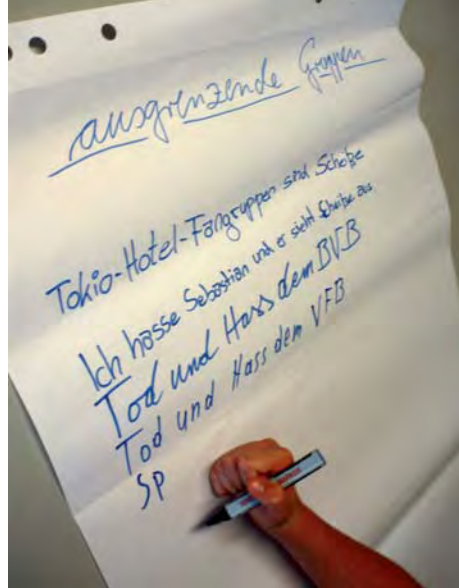 ausgrenzende Gruppen
Tokio-Hotel-Fangruppen sind Scheiße
Ich hasse Sebastian und er sieht Scheiße aus
Tod und Hass dem BVB
Tod und Hass dem VFB
SP